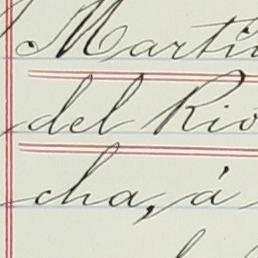 Marti
del Rio
cha, á